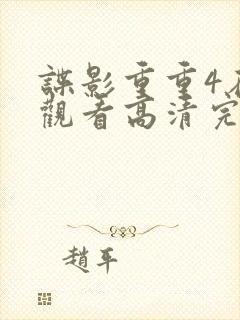 諜影重重4
觀看高清完
趙平